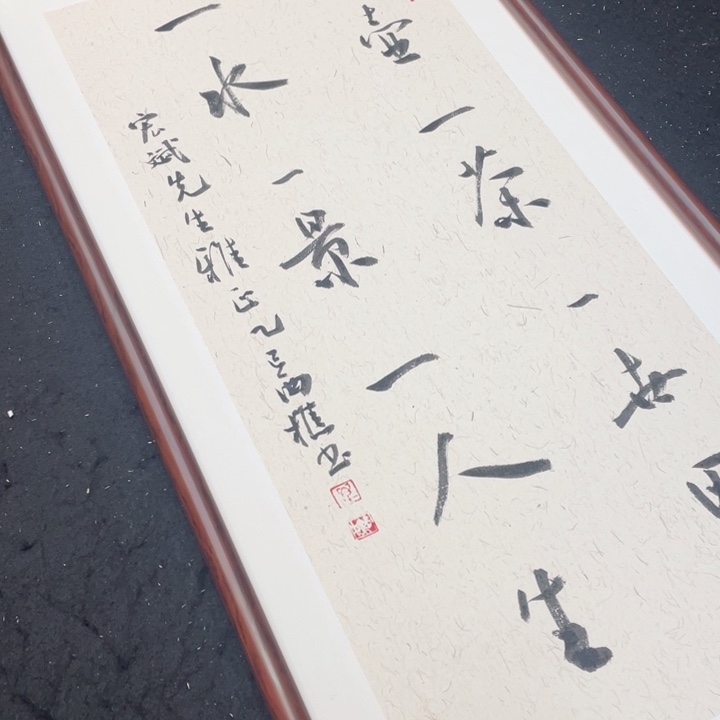 壶一茶一世
一水一景一人生
宏斌先生雅正乙巳西樵书